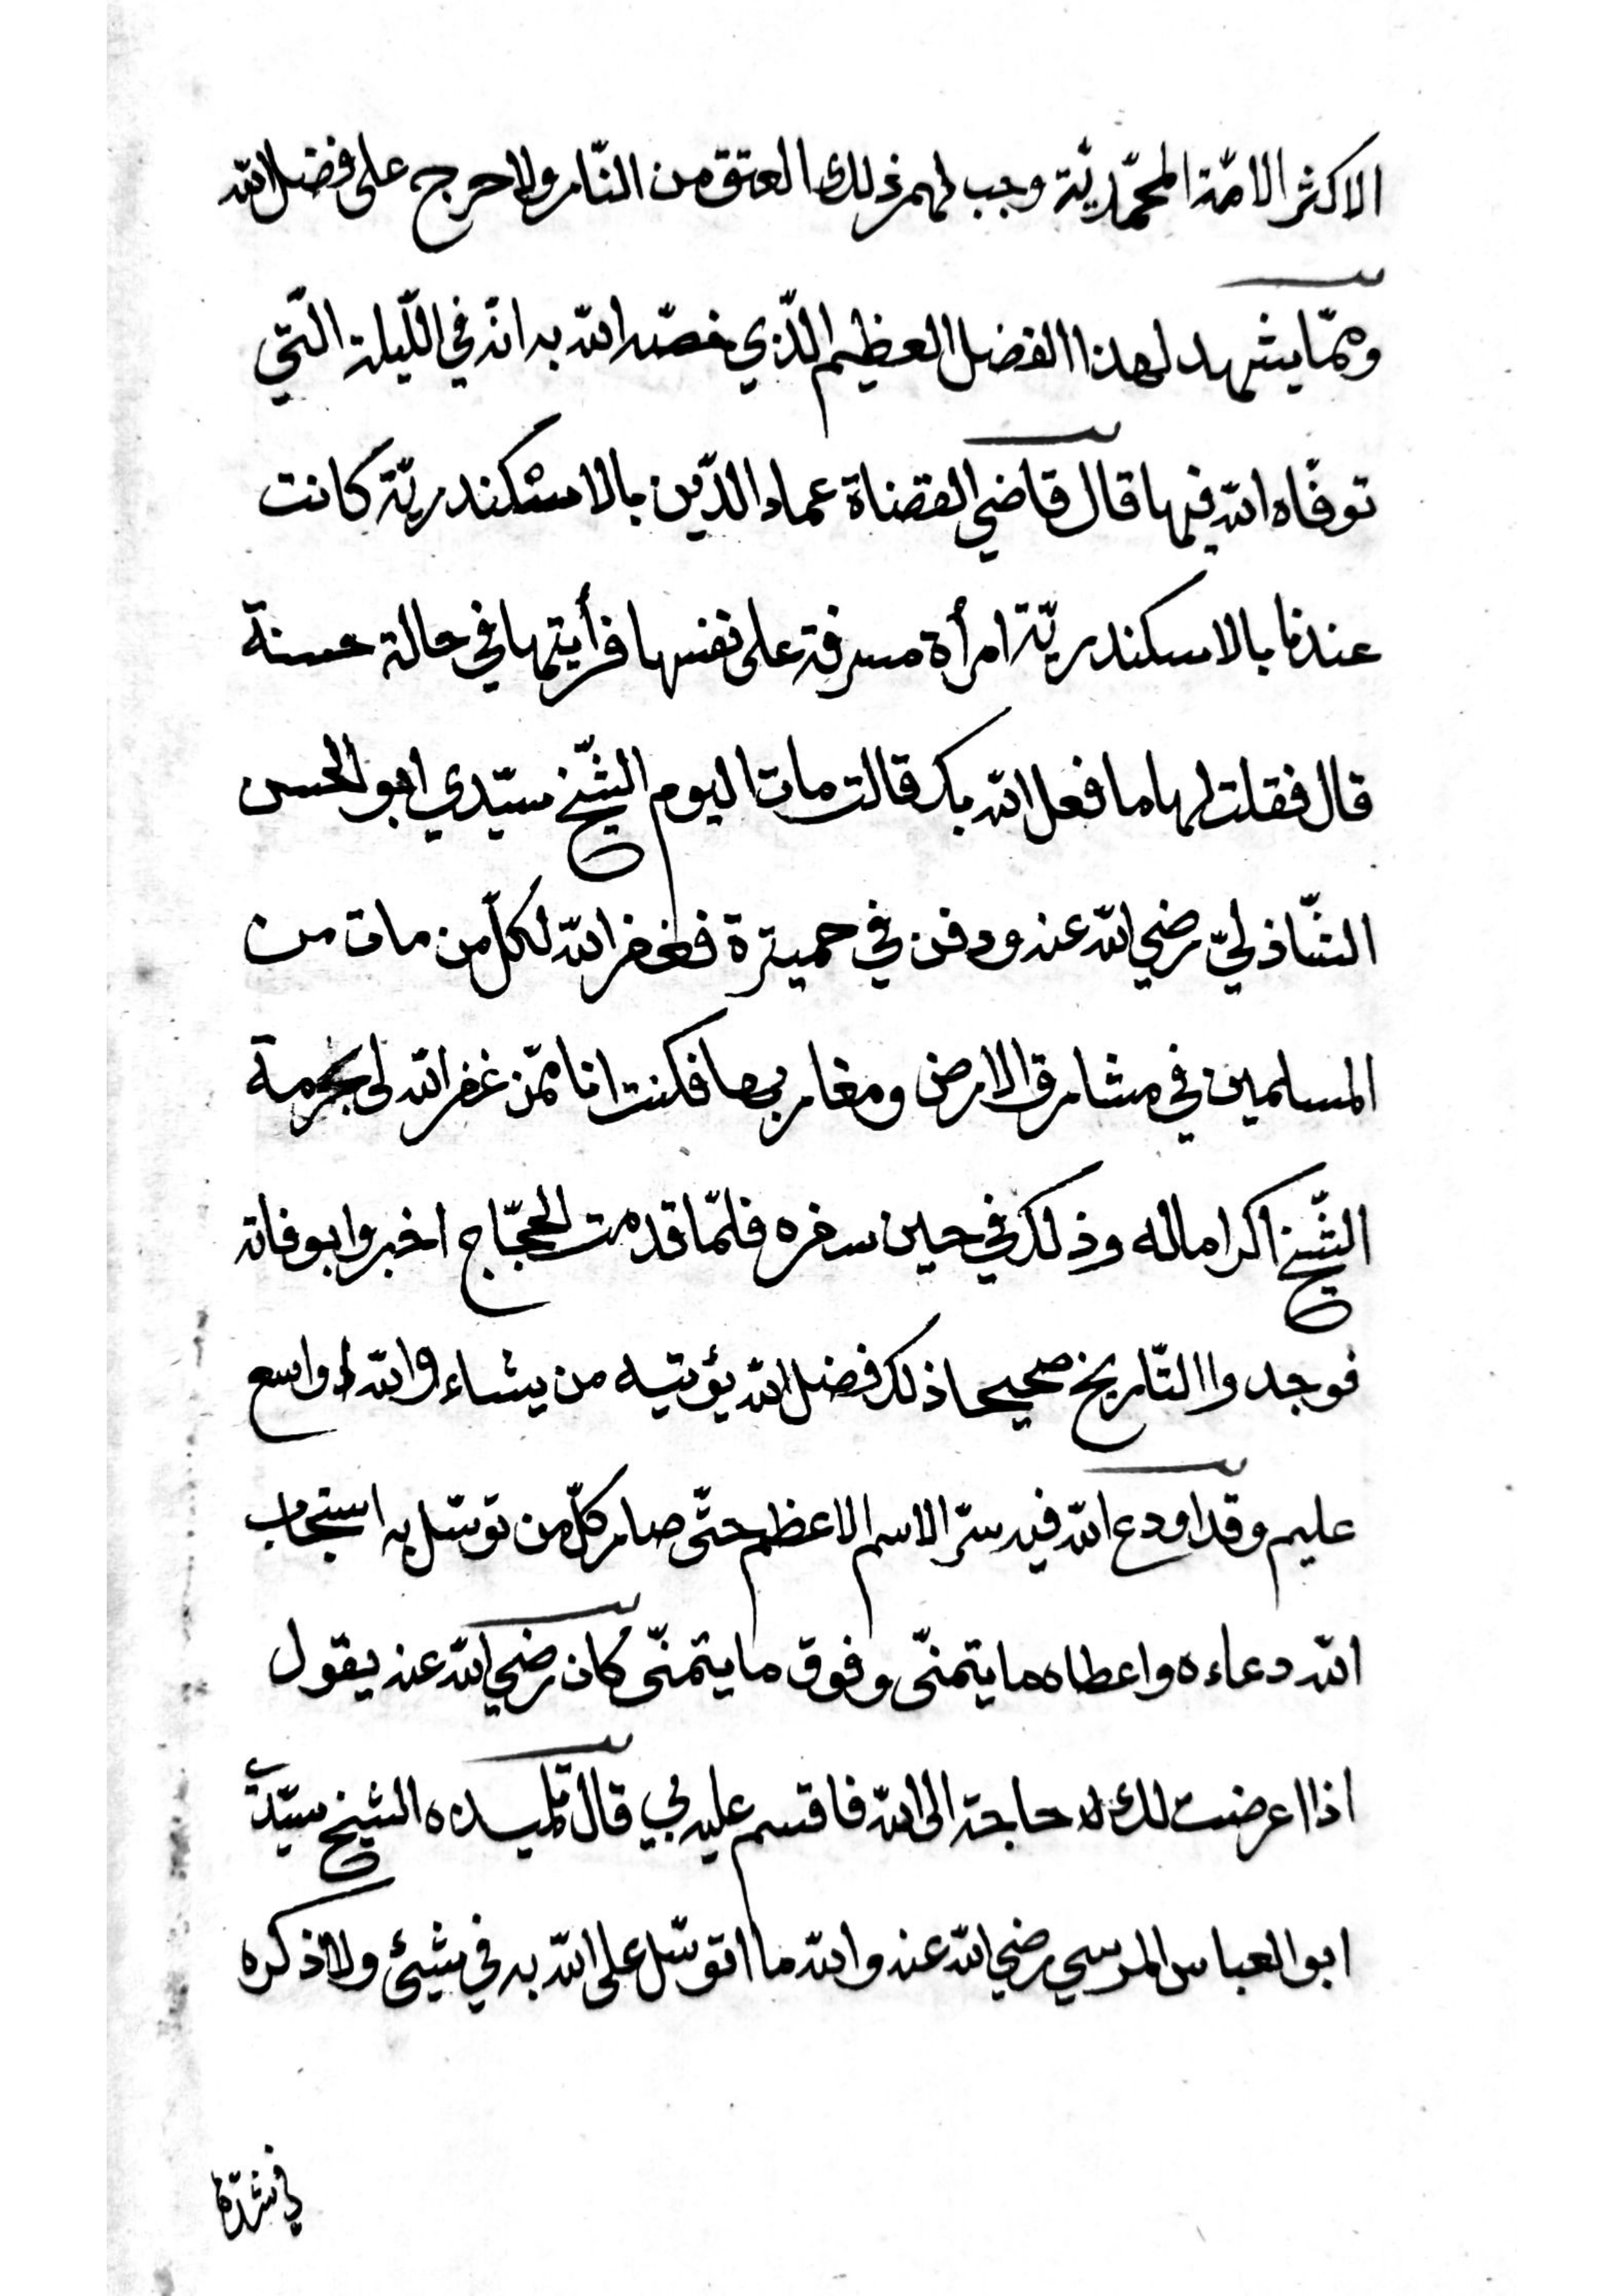 الاكثر الامّة المحمّديّة وجب لهم ذلك العتق من النّار ولا حرج على فضل الله
وممّا يشهد لهذا الفضل العظيم الّذي خصّه الله به انّه في اللّيلة الّتي
توفّاه الله فيها قال قاضي القضاة عماد الدّين بالاسكندريّة كانت
عندنا بالاسكندريّة امرأة مسرفة على نفسها فرأيتها في حالة حسنة
قال فقلت لها ما فعل الله بك قالت مات اليوم الشّيخ سيّدي ابو الحسن
الشّاذليّ رضي الله عنه ودفن في حميترة فغفر الله لكلّ من مات من
المسلمين في مشارق الارض ومغاربها فكنت انا ممّن غفر الله لى بحرمة
الشّيخ اكراما له وذلك في حين سفره فلمّا قدمت الحجّاج اخبروا بوفاته
فوجدوا التّاريخ صحيحا ذلك فضل الله يؤتيه من يشاء والله واسع
عليم وقد اودع الله فيه سرّ الاسم الاعظم حتّى صار كلّ من توسّل به استجاب
الله دعاءه واعطاه ما يتمنّى وفوق ما يتمنّى كان رضي الله عنه يقول
اذا عرضت لك حاجة الى الله فاقسم عليه بي قال تلميذه الشيخ سيّدي
ابو العباس المرسي رضي الله عنه والله ما اتوسّل على الله به في شيئ ولا اذكره
في شدّة